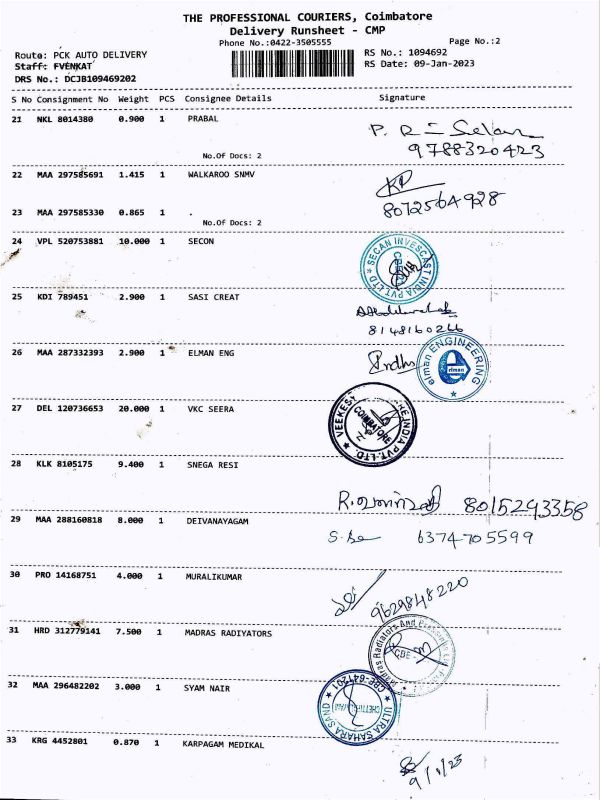 THE PROFESSIONAL COURIERS, Coimbatore
Delivery Runsheet - CMP
Phone No.:0422-3505555 Page No.:2
Route: PCK AUTO DELIVERY RS No.: 1094692
Staff: FVENKAT RS Date: 09-Jan-2023
DRS No.: DCJB109469202
S No Consignment No Weight PCS Consignee Details Signature
21 NKL 8014380 0.900 1 PRABAL
9788320423
No.Of Docs: 2
22 MAA 297585691 1.415 1 WALKAROO SNMV
8072564928
23 MAA 297585330 0.865 1 .
No.Of Docs: 2
24 VPL 520753881 10.000 1 SECON
SECAN INVESCAST INDIA PVT LTD
25 KDI 789451 2.900 1 SASI CREAT
8148160266
26 MAA 287332393 2.900 1 ELMAN ENG
elman ENGINEERING
elman
27 DEL 120736653 20.000 1 VKC SEERA
COIMBATORE
INDIA PVT. LTD.
28 KLK 8105175 9.400 1 SNEGA RESI
8015293358
29 MAA 288160818 8.000 1 DEIVANAYAGAM
6374705599
30 PRO 14168751 4.000 1 MURALIKUMAR
9629848220
31 HRD 312779141 7.500 1 MADRAS RADIYATORS
Madras Radiators And
CBE
32 MAA 296482202 3.000 1 SYAM NAIR
CBE-641201
ULTRA SAHARA SAND
33 KRG 4452801 0.870 1 KARPAGAM MEDIKAL
9/1/23